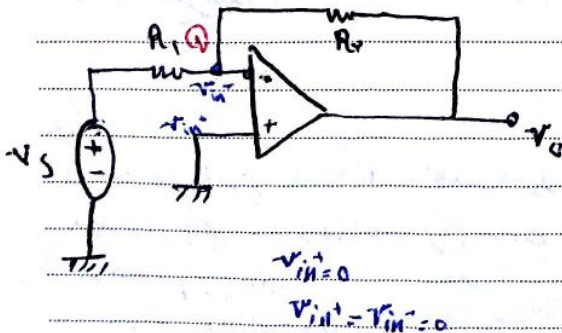 R₁ ①
R₂
Vin⁻
-
Vin⁺
+
Vo
Vs
+
-
Vin⁺=0
Vin⁺-Vin⁻=0